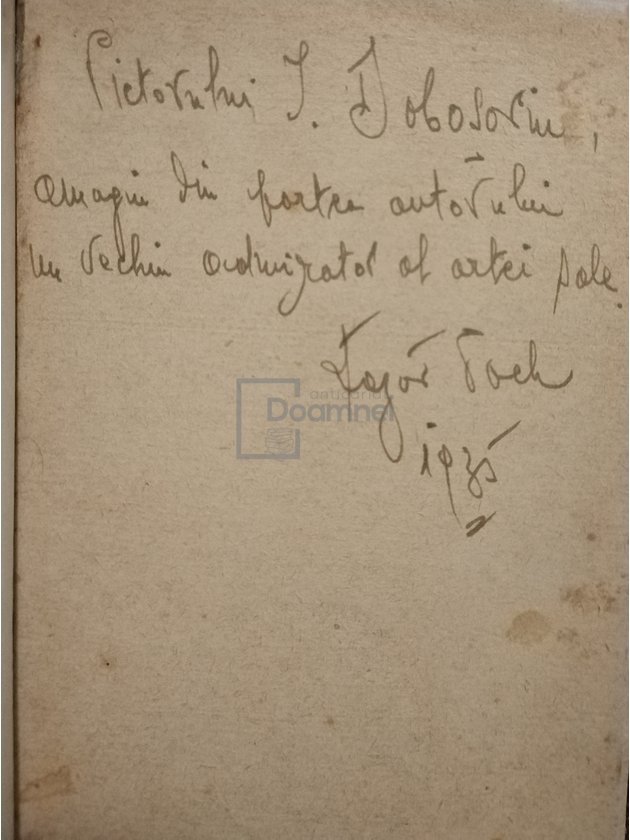 Pictorului I. Dobosariu,
omagiu din partea autorului
un vechiu admirator al artei sale.
1935
anticariat
Doamnei